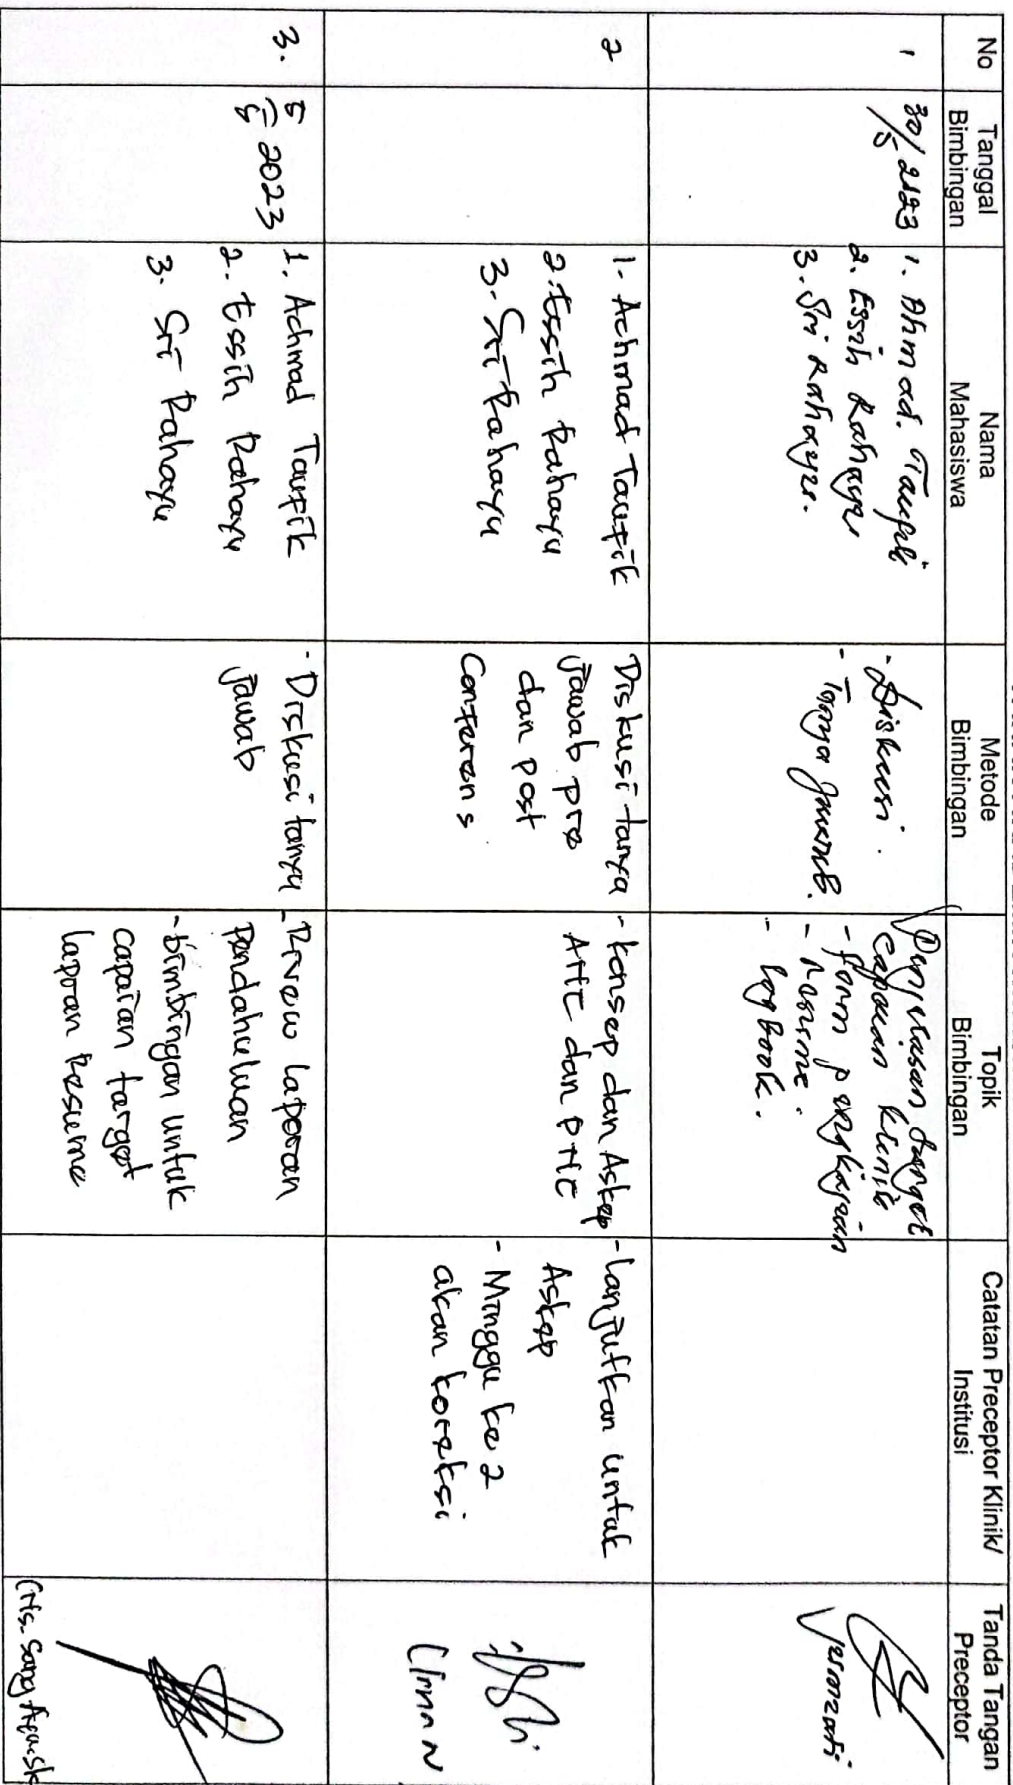 No
Tanggal
Bimbingan
Nama
Mahasiswa
Metode
Bimbingan
Topik
Bimbingan
Catatan Preceptor Klinik/
Institusi
Tanda Tangan
Preceptor
1
30/5 2023
1. Ahmad. Taufik
2. Essih Rahayu
3. Sri Rahayu.
- Diskusi.
- Tanya jawab.
Penjelasan target
capaian klinik
- form pengkajian
- Resume.
- logBook.
Yusnzati
2
1. Achmad Taufik
2. Essih Rahayu
3. Sri Rahayu
Diskusi tanya
jawab pre
dan post
Conferens
- konsep dan Askep
AHE dan PHE
- lanjutkan untuk
Askep
- Minggu ke 2
akan koreksi
3.
5/5 2023
1. Achmad Taufik
2. Essih Rahayu
3. Sri Rahayu
- Diskusi tanya
jawab
- Rivew laporan
Pendahuluan
- bimbingan untuk
capaian target
laporan Resume
(Ns. Sang